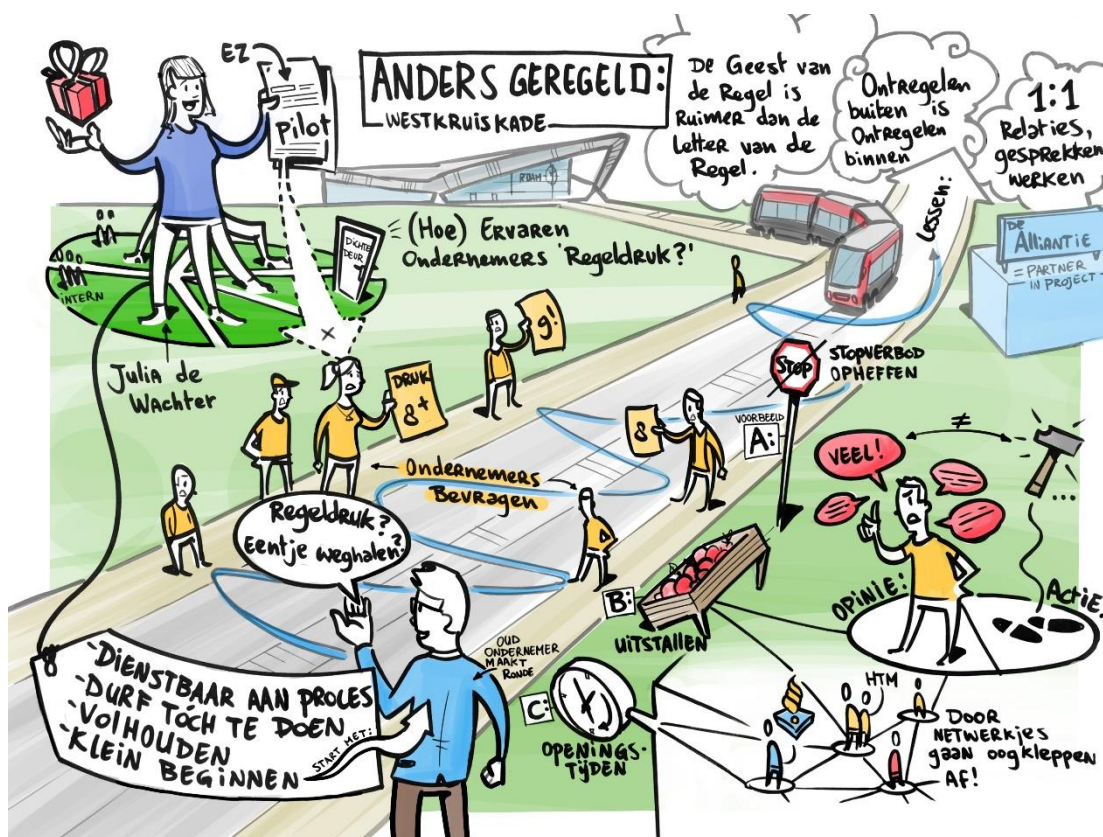 EZ
pilot
ANDERS GEREGELD:
WESTKRUISKADE
De Geest van
de Regel is
Ruimer dan de
Letter van de
Regel.
Ontregelen
buiten is
Ontregelen
binnen
1:1
Relaties,
gesprekken
werken
Lessen:
DE
Alliantie
= PARTNER
IN PROJECT
RDAM
DICHTE
DEUR
(Hoe) Ervaren
Ondernemers 'Regeldruk?'
INTERN
Julia de
Wachter
DRUK
8+
9!
8
STOP
STOPVERBOD
OPHEFFEN
VOORBEELD
A:
Ondernemers
Bevragen
VEEL!
≠
...
OPINIE:
ACTIE!
Regeldruk?
Eentje weghalen?
B:
UITSTALLEN
OUD
ONDERNEMER
MAAKT
RONDE
C:
OPENINGS-
TIJDEN
HTM
DOOR
NETWERKJES
GAAN OOGKLEPPEN
AF!
-DIENSTBAAR AAN PROLES
-DURF TÓCH TE DOEN
-VOLHOUDEN
-KLEIN BEGINNEN
START MET: